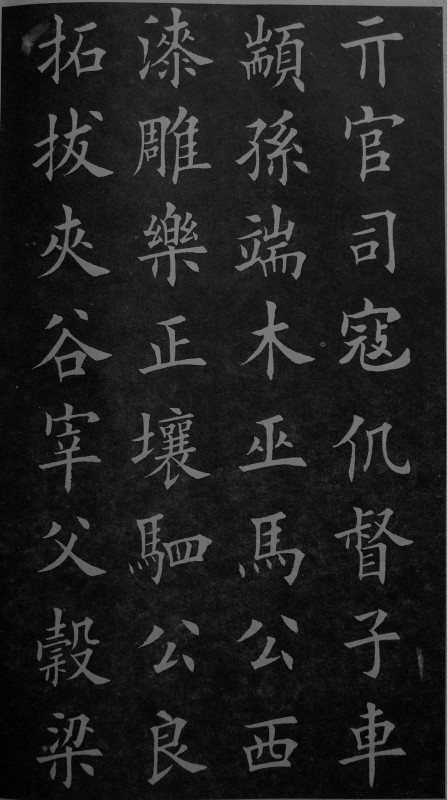 亓官司寇仉督子車
顓孫端木巫馬公西
漆雕樂正壤駟公良
拓拔夾谷宰父榖梁